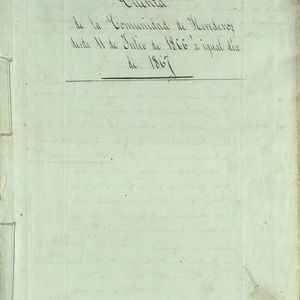 Cuenta
de la Comunidad de Herederos
desde 11 de Julio de 1866 á igual dia
de 1867